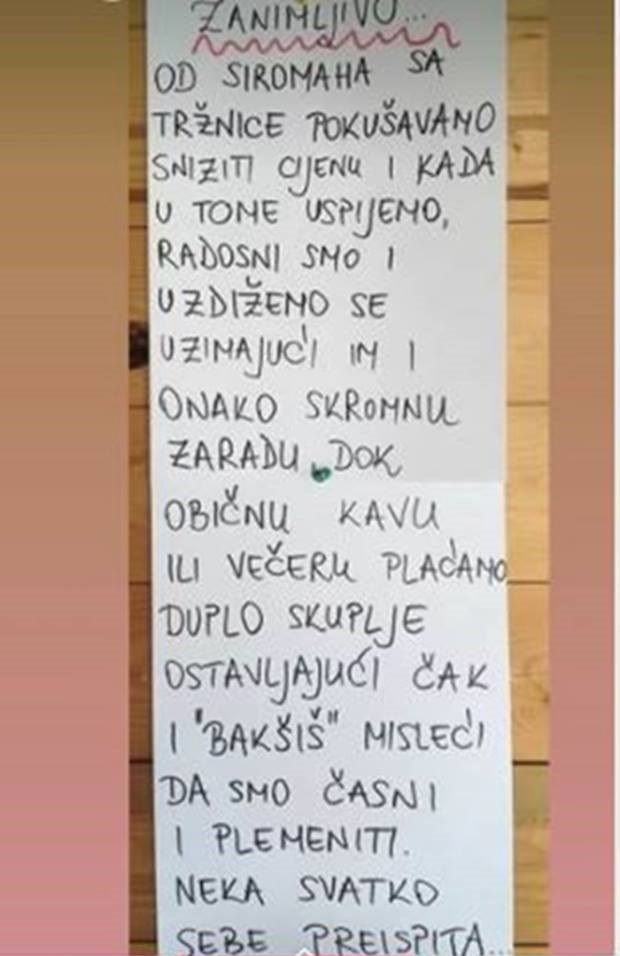 ZANIMLJIVO...
OD SIROMAHA SA
TRŽNICE POKUŠAVAMO
SNIZITI CIJENU I KADA
U TOME USPIJEMO,
RADOSNI SMO I
UZDIŽEMO SE
UZIMAJUĆI IM I
ONAKO SKROMNU
ZARADU, DOK
OBIČNU KAVU
ILI VEČERU PLAĆAMO
DUPLO SKUPLJE
OSTAVLJAJUĆI ČAK
I "BAKŠIŠ" MISLEĆI
DA SMO ČASNI
I PLEMENITI.
NEKA SVATKO
SEBE PREISPITA...